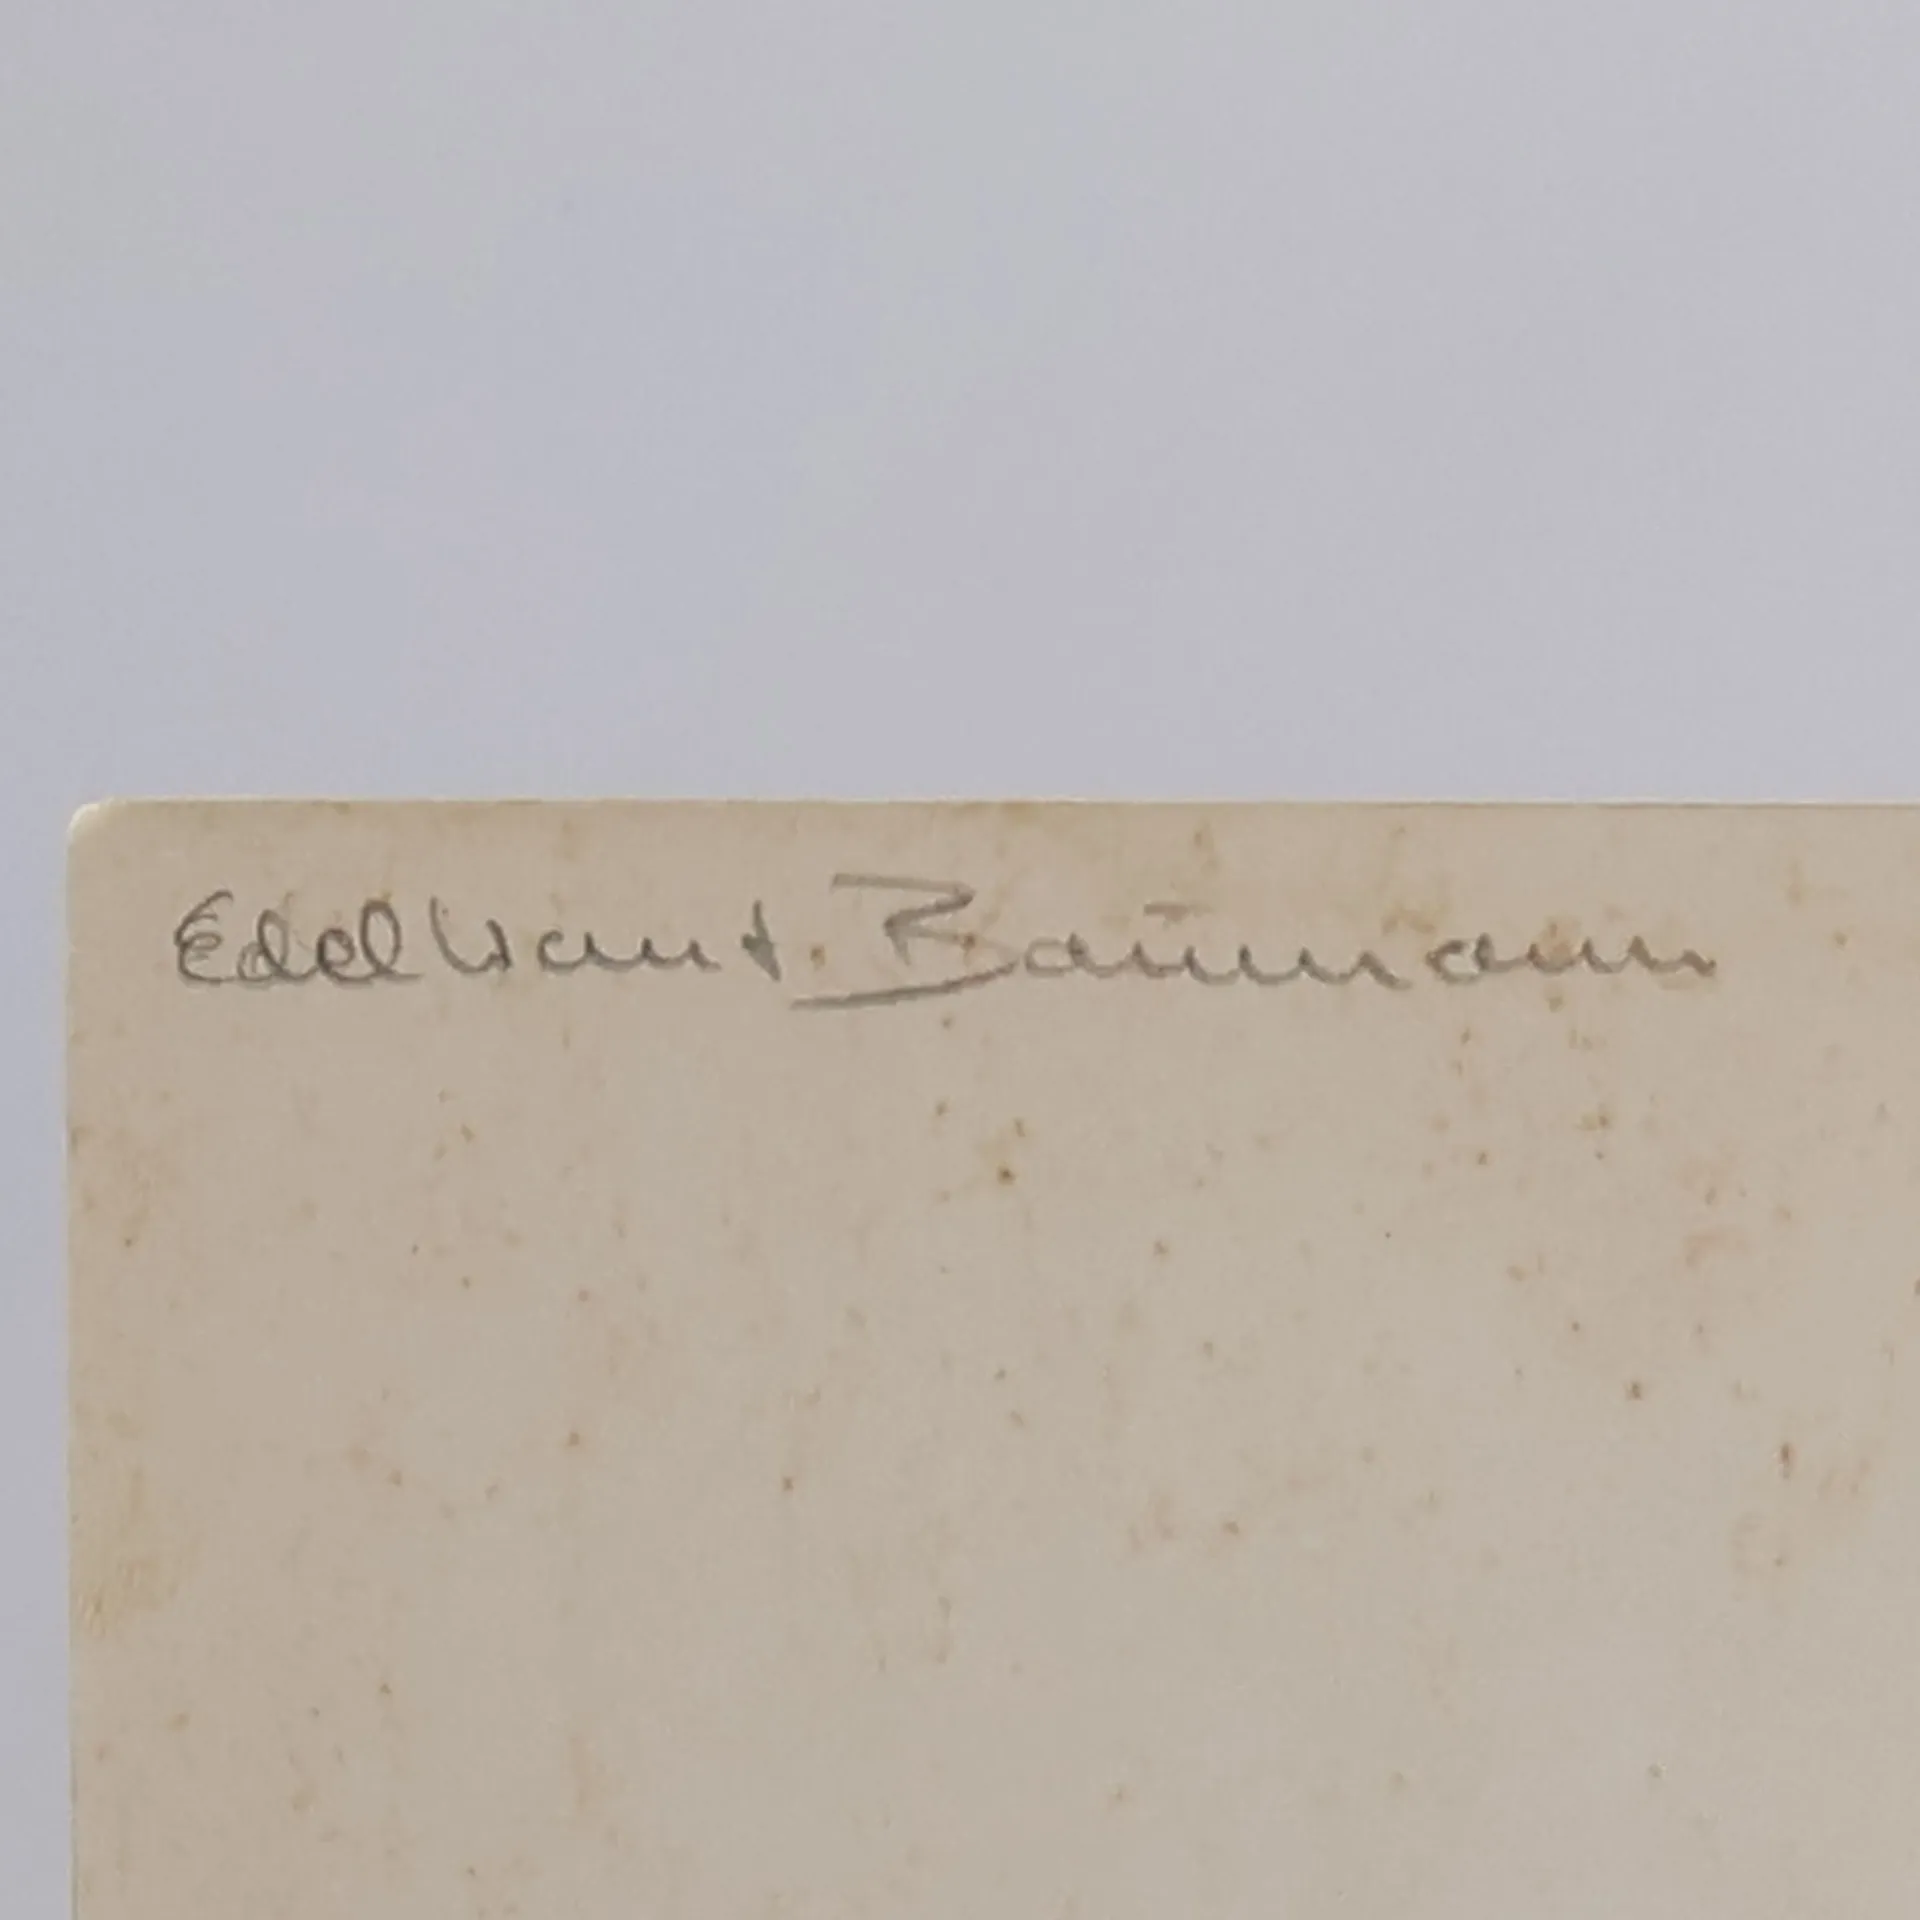 Edeltraut Baumann